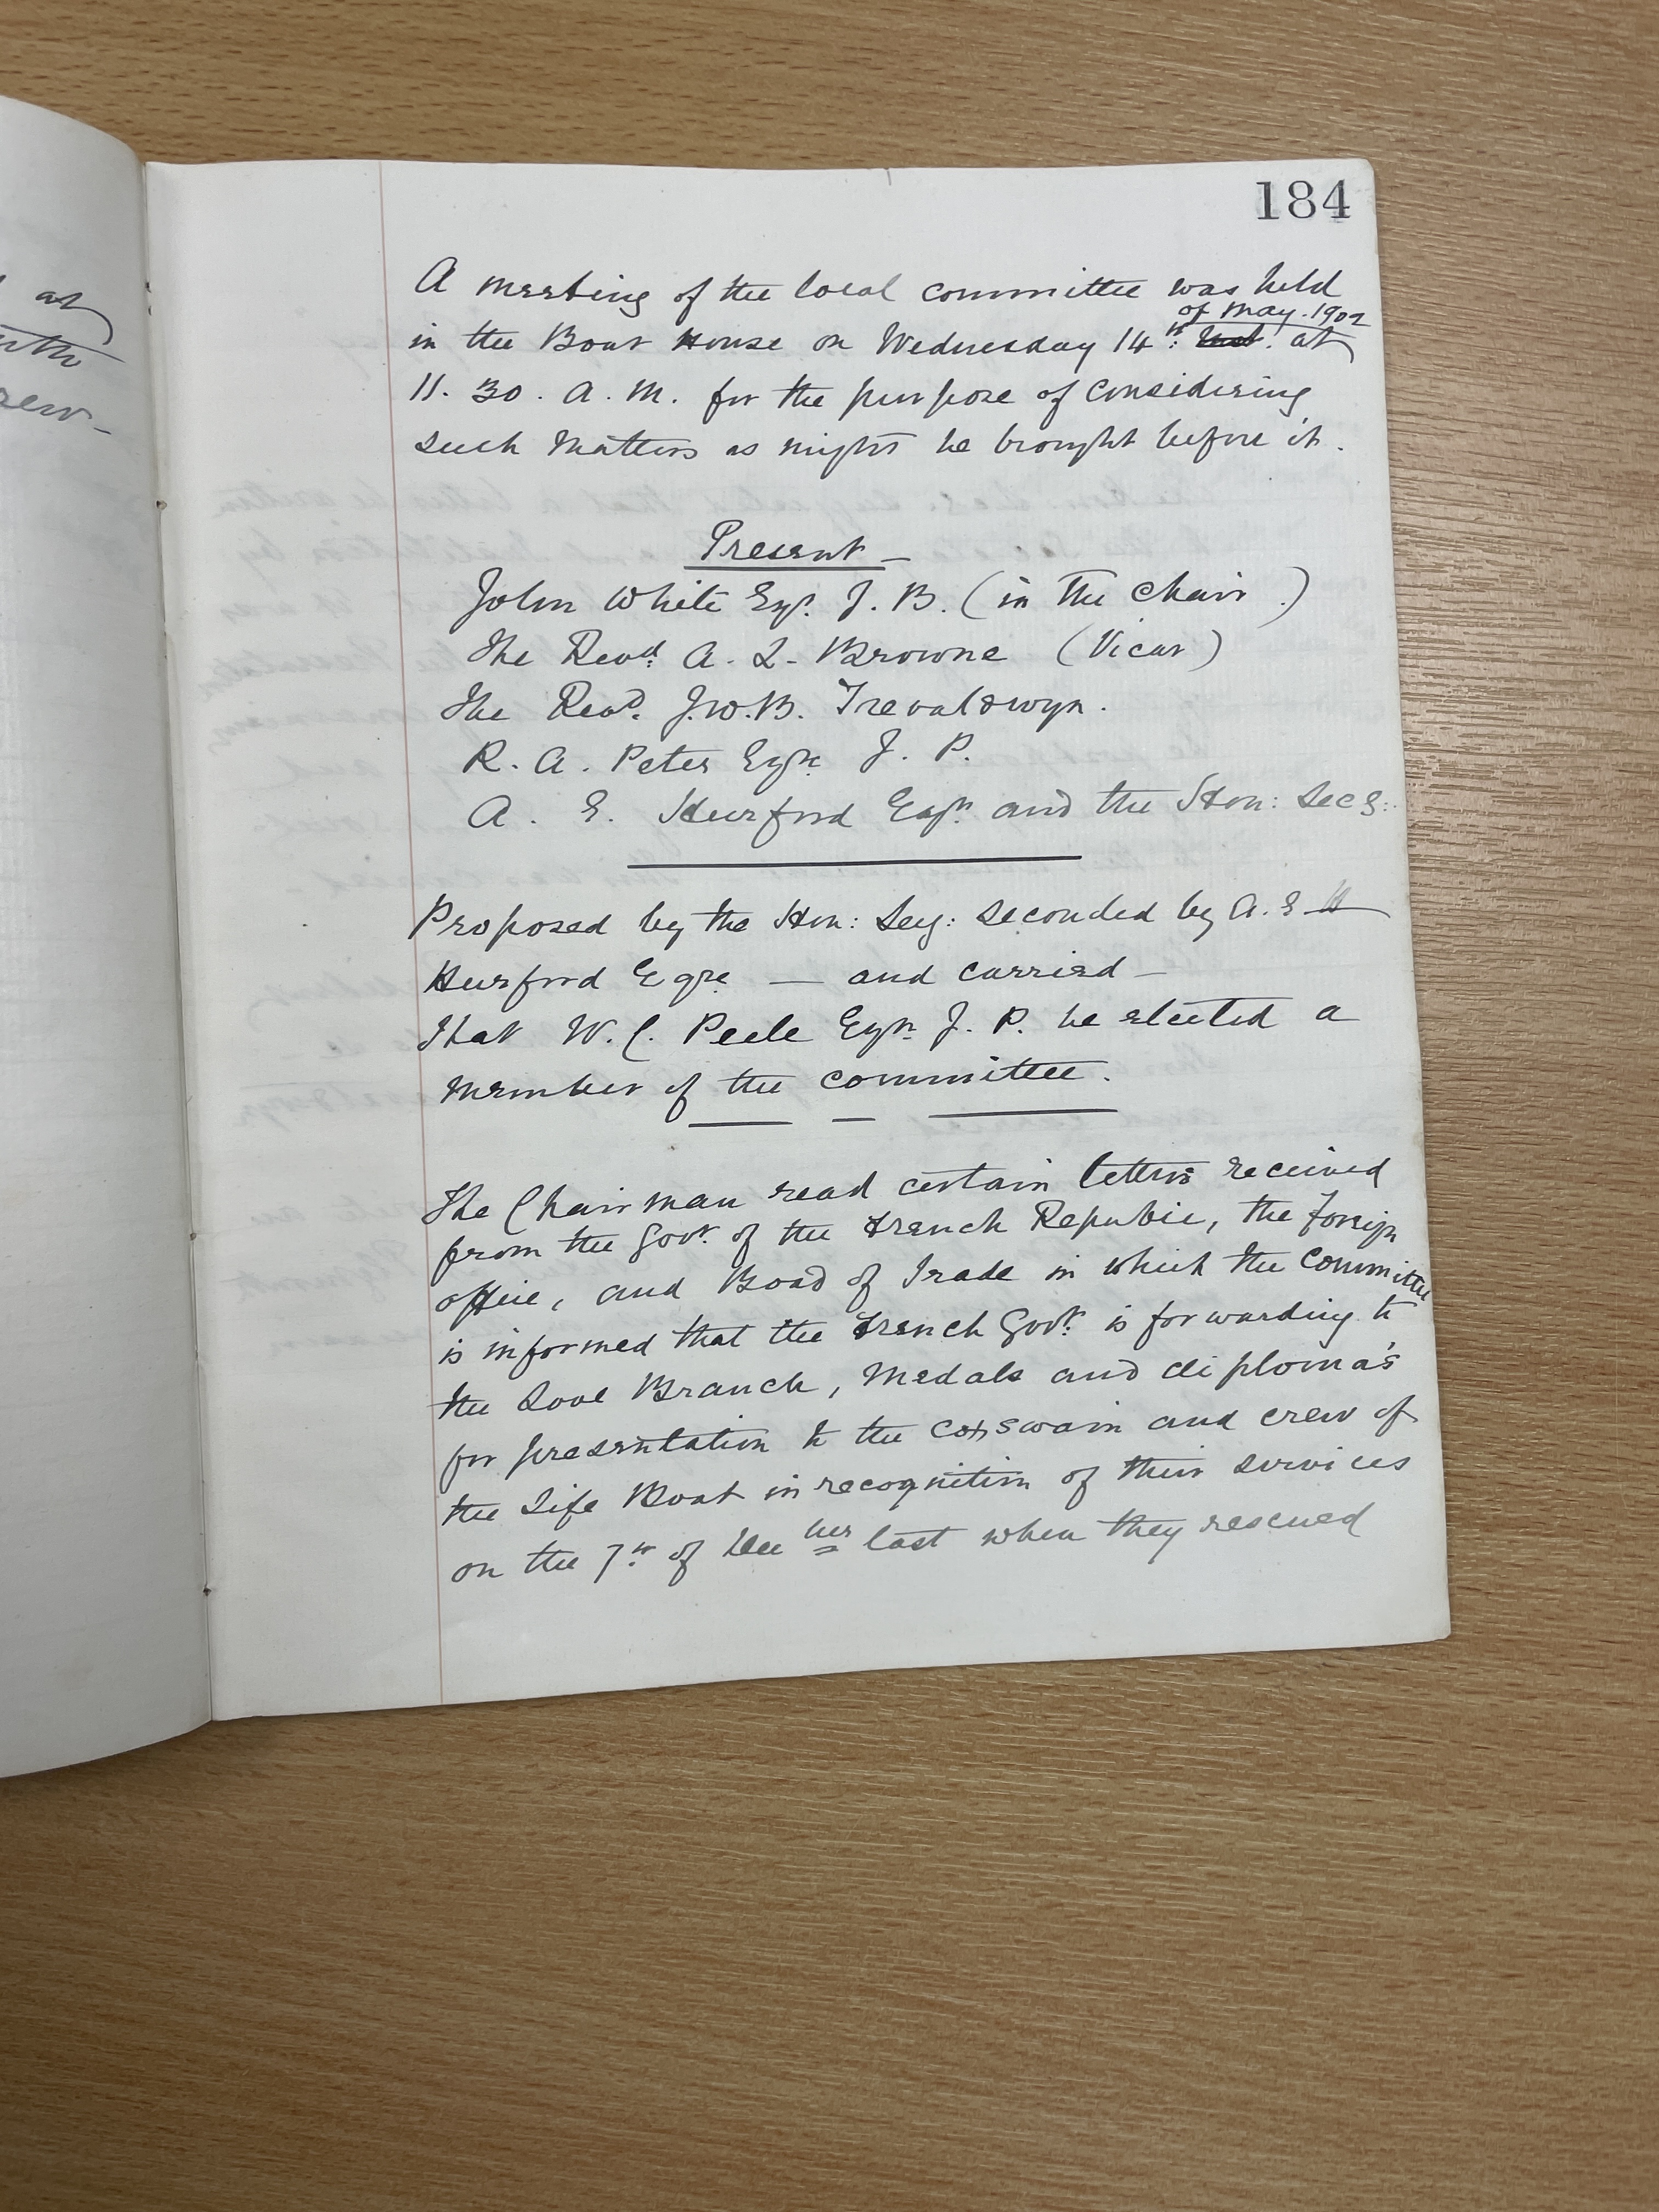 at
184
A meeting of the local committee was held
of May. 1902
in the Boat House on Wednesday 14th: Inst. at
11. 30. A. M. for the purpose of considering
such Matters as might be brought before it.
Present –
John White Esqr. J. B. (in the Chair.)
The Revd. A. L. Browne (Vicar)
The Revd. J. W. B. Trevaldwyn.
R. A. Peter Esqre J. P.
A. E. Hurford Esqre and the Hon: Secy:
Proposed by the Hon: Secy: seconded by A. E H
Hurford Esqre — and carried –
That W. C. Peele Esqre J. P. be elected a
Member of the committee.
The Chairman read certain letters received
from the Govt. of the French Repubic, the Foreign
office, and Boad of Trade in which the Committee
is informed that the French Govt. is forwarding to
the Looe Branch, Medals and diploma's
for presentation to the coxswain and crew of
the Life Boat in recognition of their services
on the 7th of Decber last when they rescued